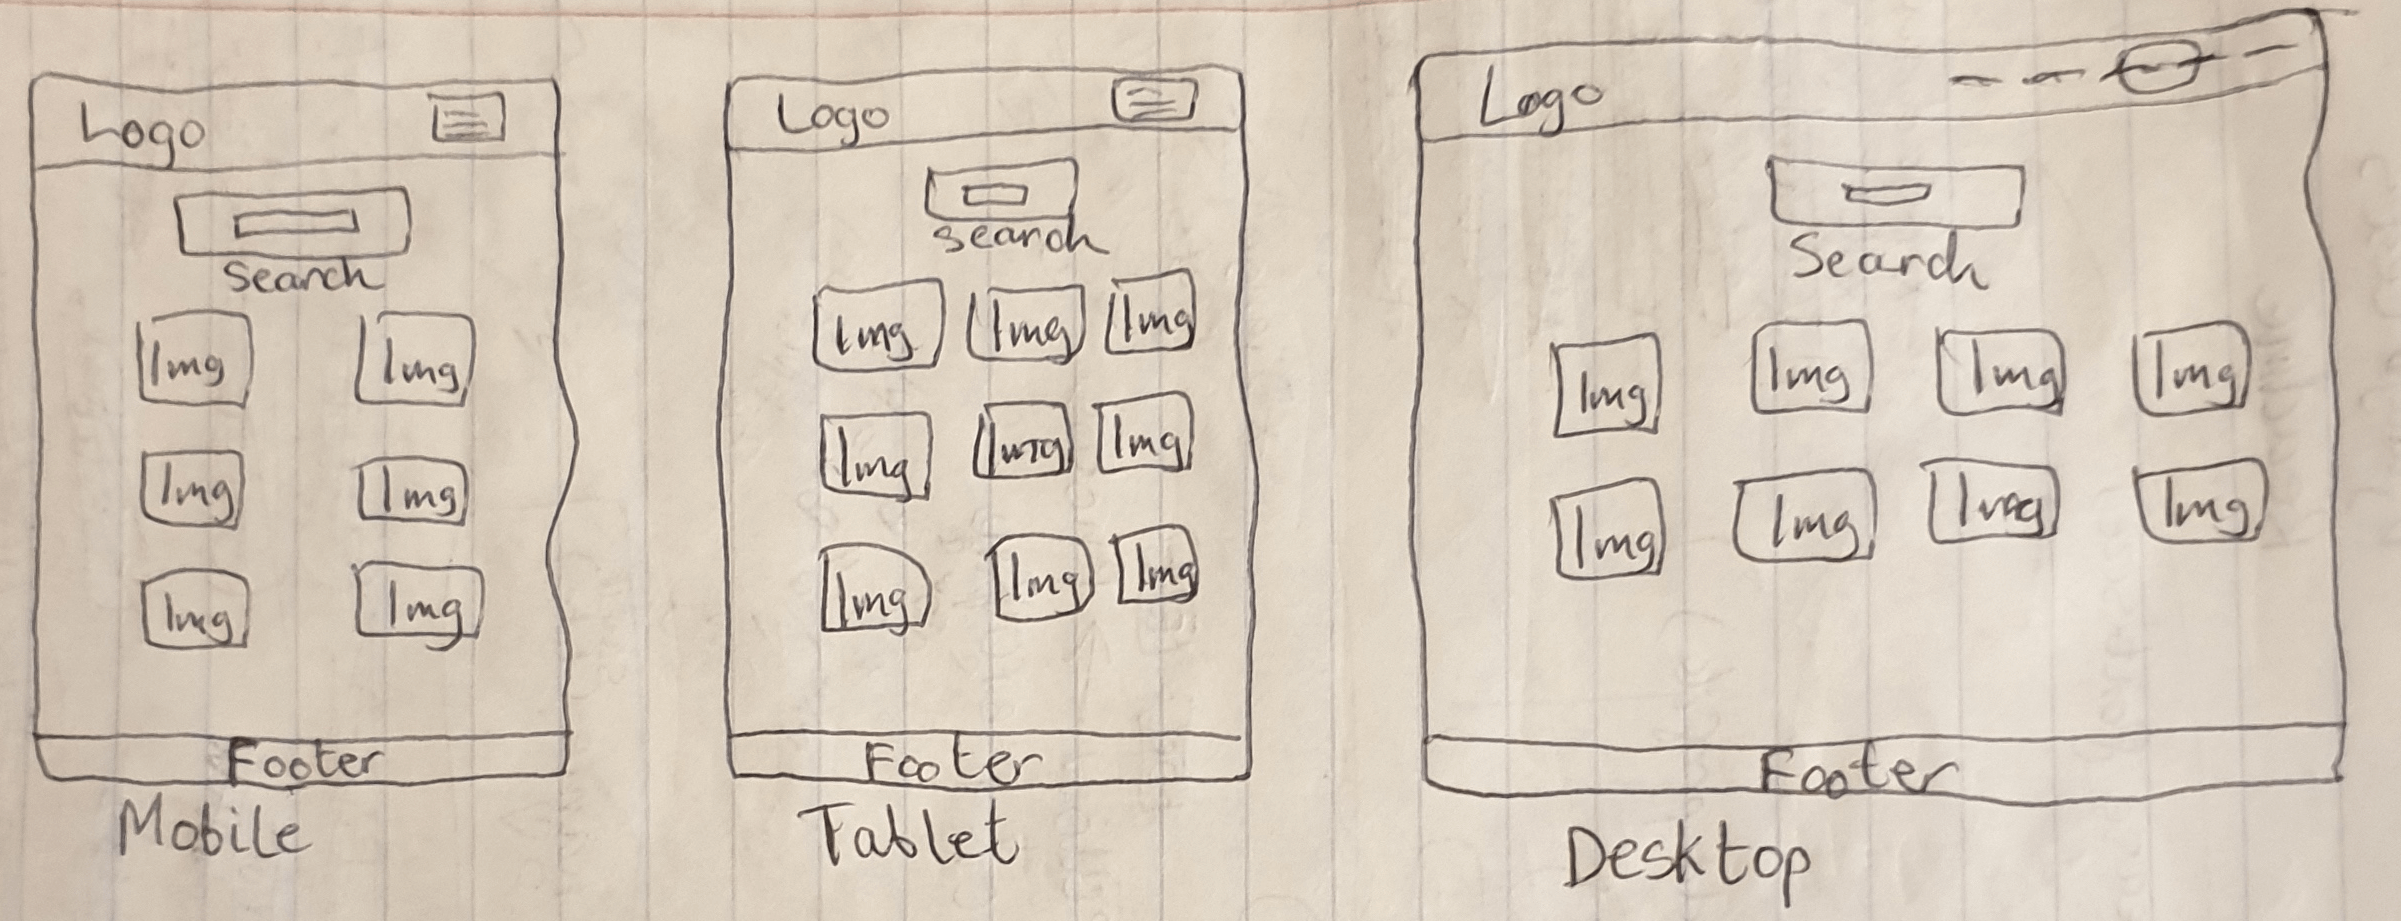 Logo
Search
Img Img
Img Img
Img Img
Footer
Mobile
Logo
Search
Img Img Img
Img Img Img
Img Img Img
Footer
Tablet
Logo
Search
Img Img Img Img
Img Img Img Img
Footer
Desktop